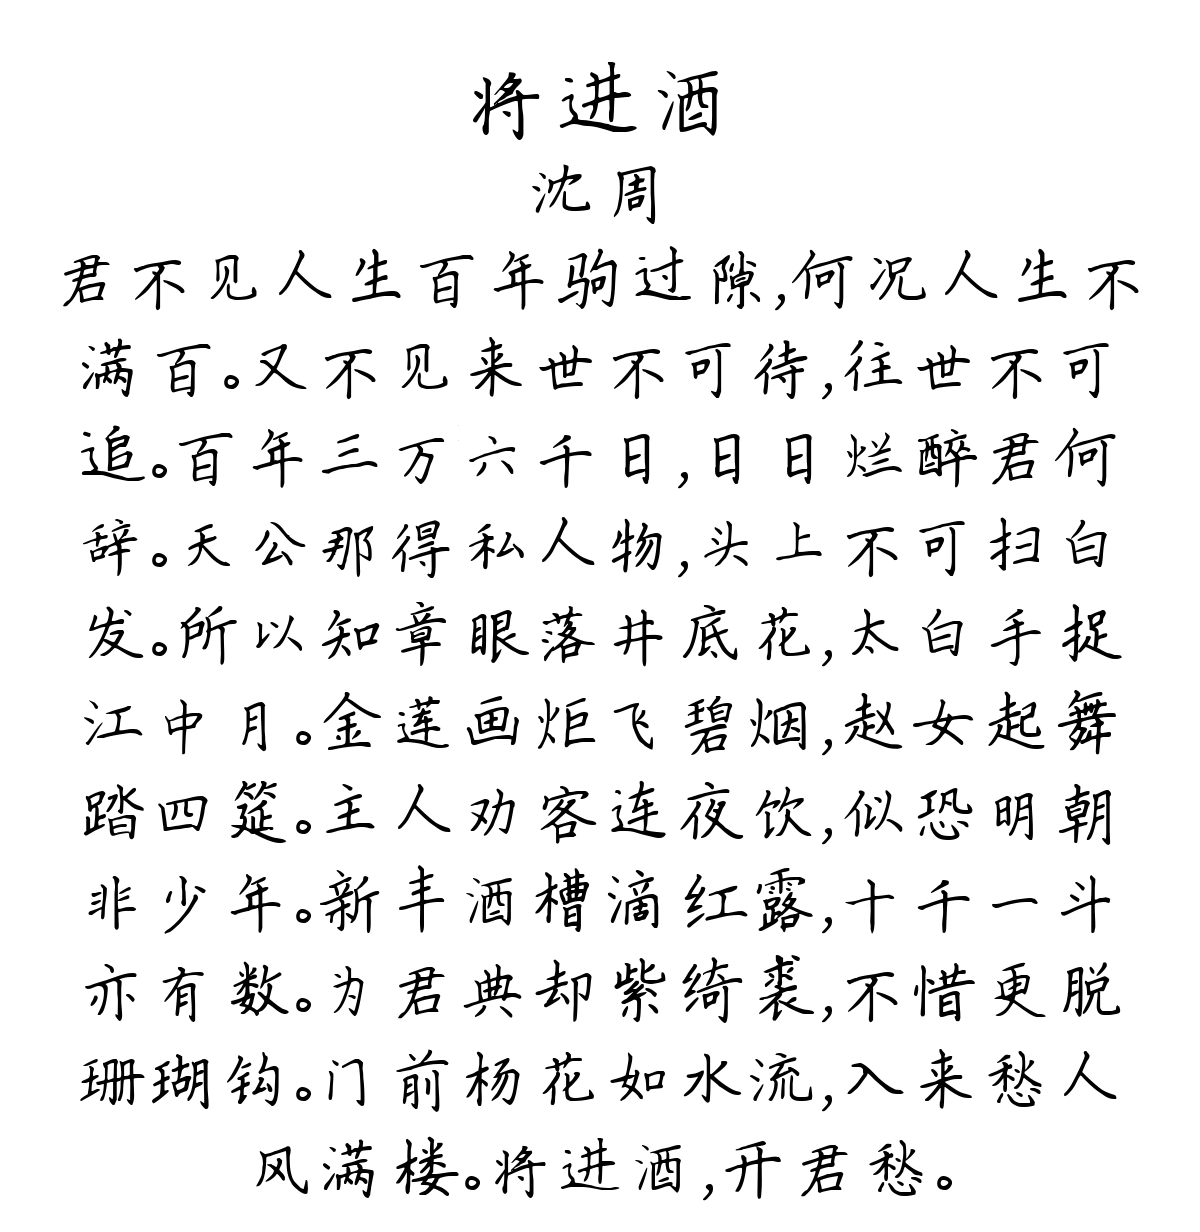 将进酒
沈周
君不见人生百年驹过隙,何况人生不
满百。又不见来世不可待,往世不可
追。百年三万六千日,日日烂醉君何
辞。天公那得私人物,头上不可扫白
发。所以知章眼落井底花,太白手捉
江中月。金莲画炬飞碧烟,赵女起舞
踏四筵。主人劝客连夜饮,似恐明朝
非少年。新丰酒槽滴红露,十千一斗
亦有数。为君典却紫绮裘,不惜更脱
珊瑚钩。门前杨花如水流,入来愁人
风满楼。将进酒,开君愁。